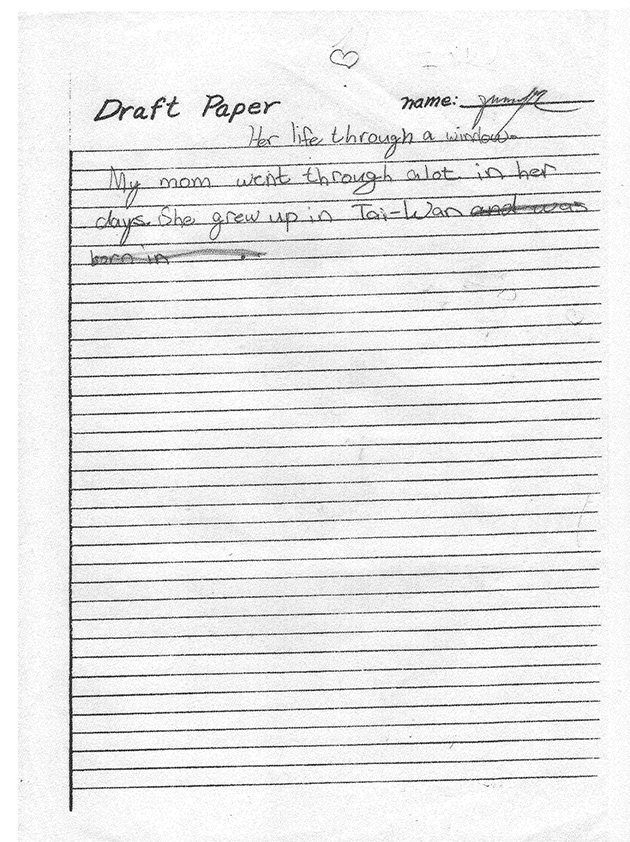 Draft Paper name:
Her life through a window
My mom went through alot in her
days. She grew up in Tai-Wan and was
born in